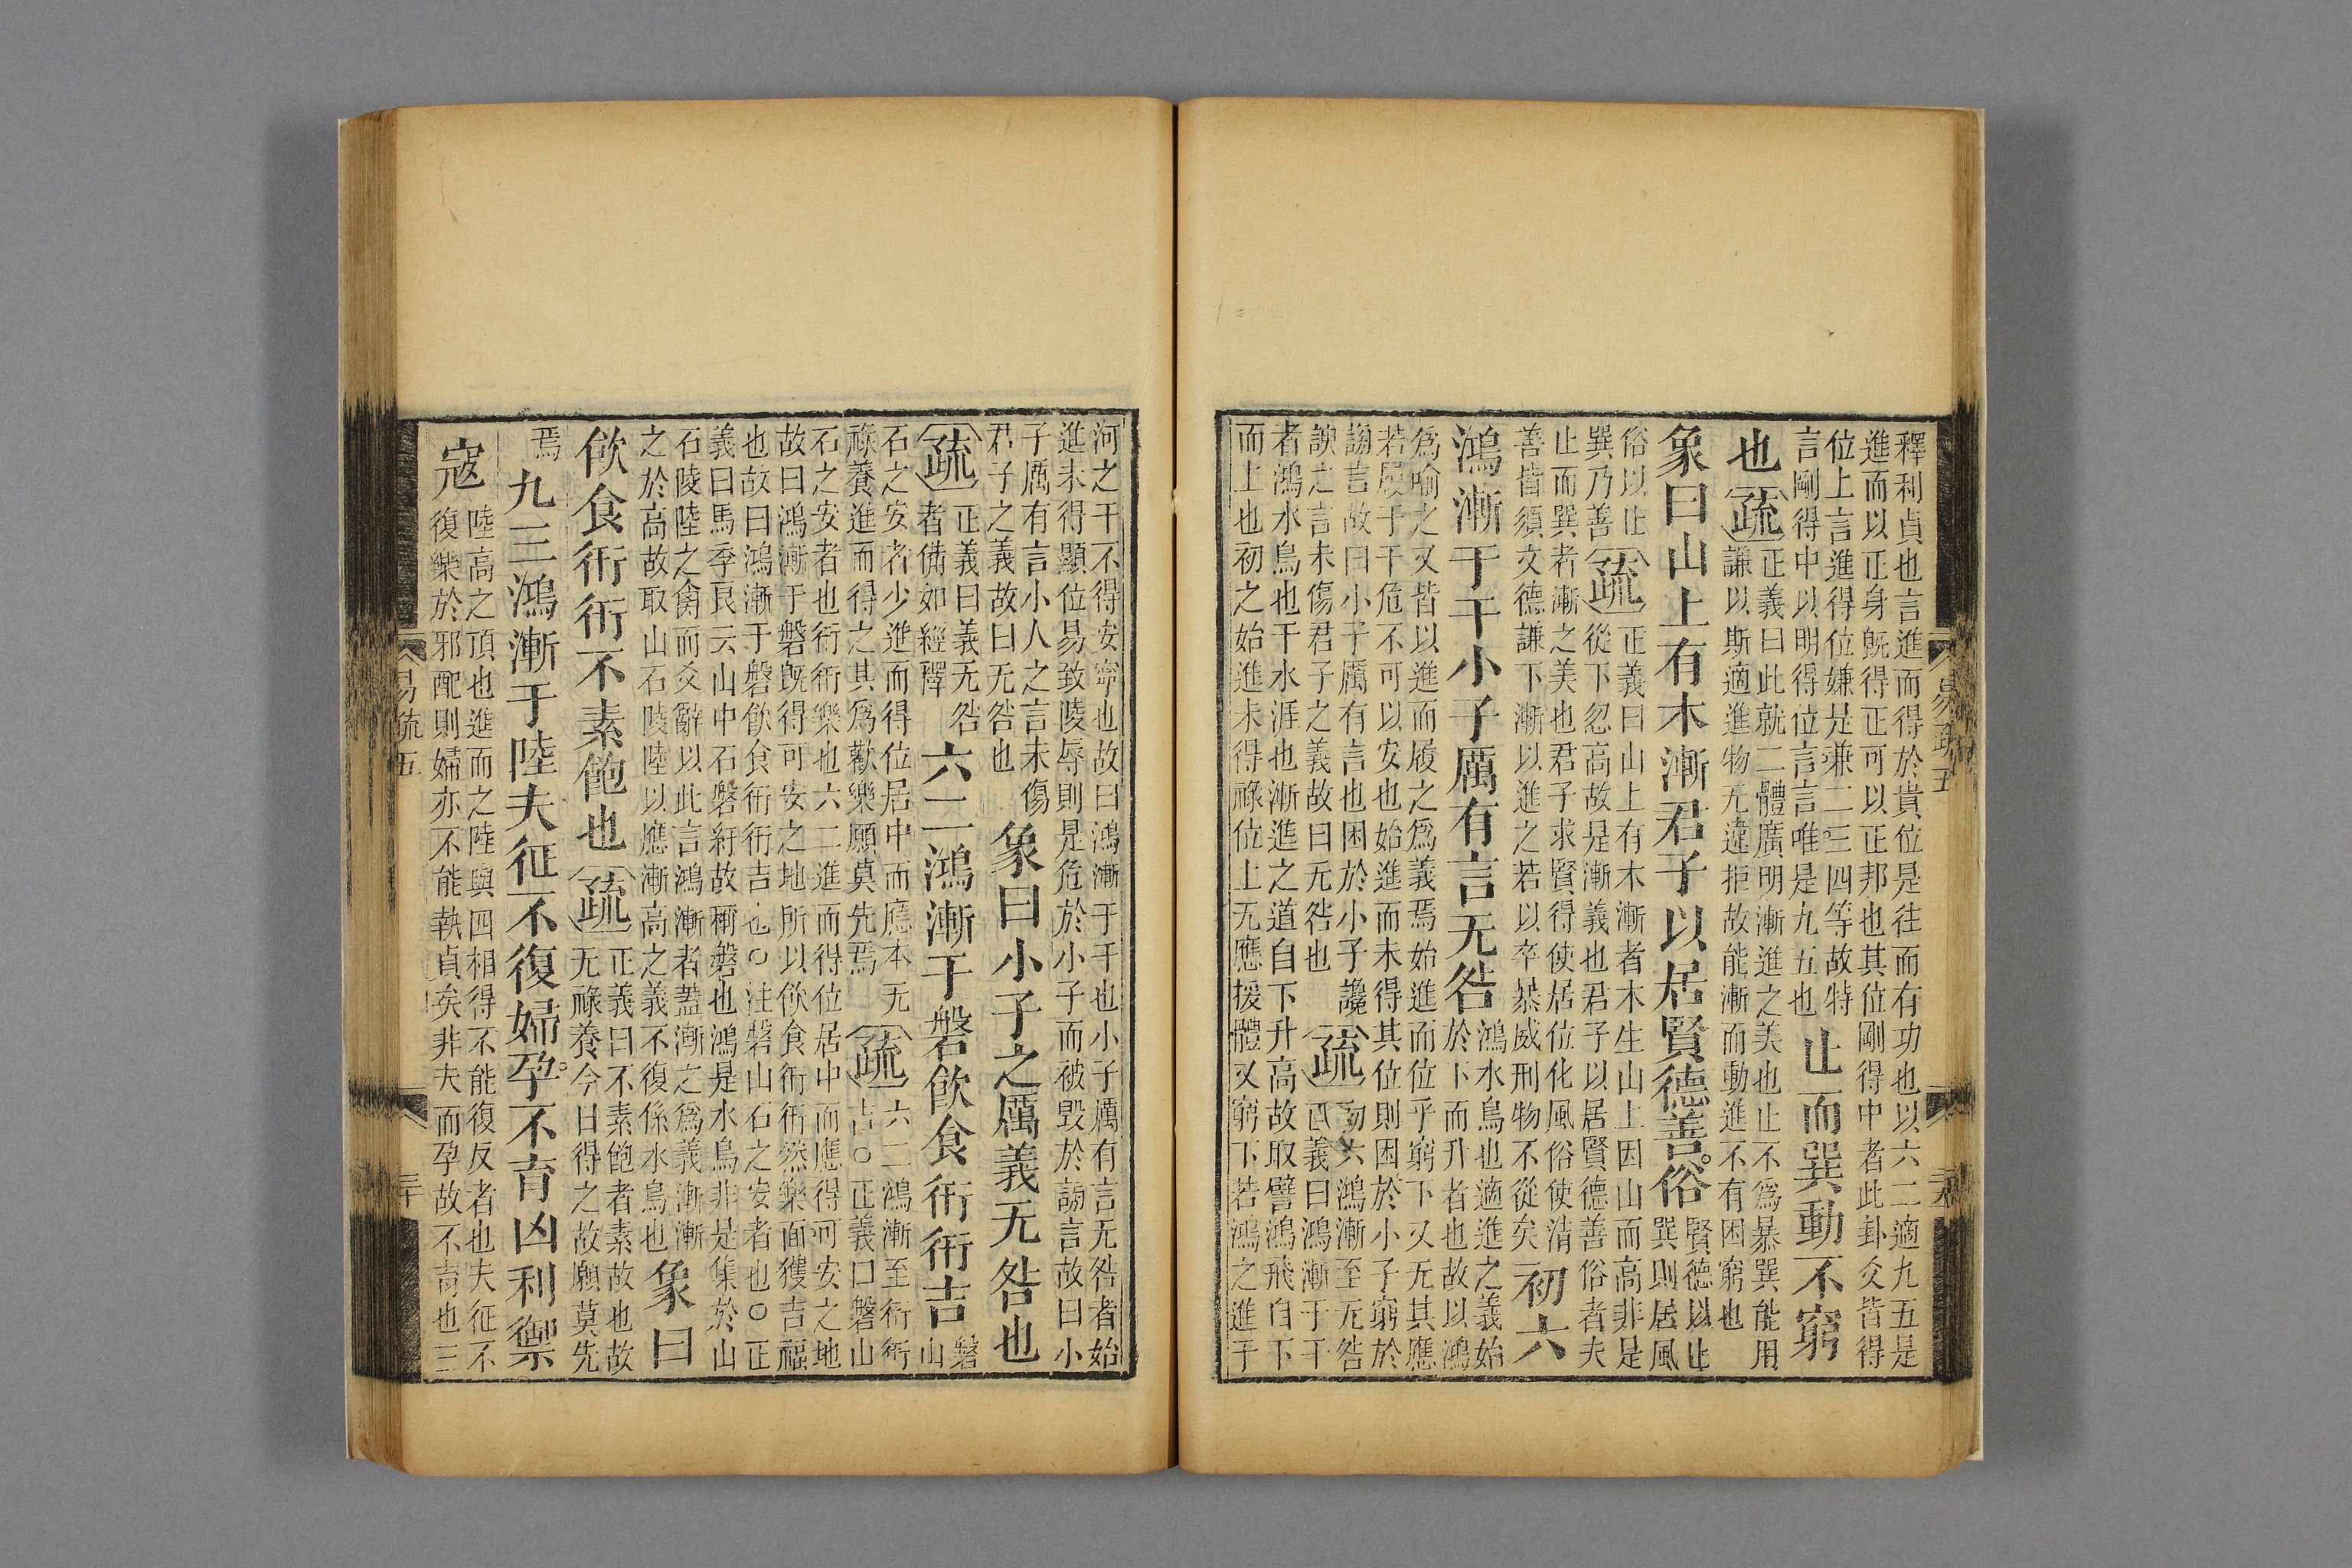 釋利貞也言進而得於貴位是往而有功也以六二適九五是
進而以正身旣得正可以正邦也其位剛得中者此卦爻皆得
位上言進得位嫌是兼二三四等故特
言剛得中以明得位言言唯是九五也
止而巽動不窮
也
疏
正義曰此就二體廣明漸進之美也止不爲暴巽能用
謙以斯適進物无違拒故能漸而動進不有困窮也
象曰山上有木漸君子以居賢德善俗
賢德以止
巽則居風
俗以止
巽乃善
疏
正義曰山上有木漸者木生山上因山而高非是
從下忽高故是漸義也君子以居賢德善俗者夫
止而巽者漸之美也君子求賢得使居位化風俗使清
善皆須文德謙下漸以進之若以卒暴威刑物不從矣
初六
鴻漸于干小子厲有言无咎
鴻水鳥也適進之義始
於下而升者也故以鴻
爲喻之又皆以進而履之爲義焉始進而位乎窮下又无其應
若履于干危不可以安也始進而未得其位則困於小子窮於
謗言故曰小子厲有言也困於小子讒
諛之言未傷君子之義故曰无咎也
疏
初六鴻漸至无咎
正義曰鴻漸于干
者鴻水鳥也干水涯也漸進之道自下升高故取譬鴻飛自下
而上也初之始進未得祿位上无應援體又窮下若鴻之進于
河之干不得安寧也故曰鴻漸于干也小子厲有言无咎者始
進未得顯位易致陵辱則是危於小子而被毀於謗言故曰小
子厲有言小人之言未傷
君子之義故曰无咎也
象曰小子之厲義无咎也
疏
正義曰義无咎
者備如經釋
六二鴻漸于磐飲食衎衎吉
磐山
石之安者少進而得位居中而應本无
祿養進而得之其爲歡樂願莫先焉
疏
六二鴻漸至衎衎
吉○正義曰磐山
石之安者也衎衎樂也六二進而得位居中而應得可安之地
故曰鴻漸于磐旣得可安之地所以飲食衎衎然樂而獲吉福
也故曰鴻漸于磐飲食衎衎吉也○注磐山石之安者也○正
義曰馬季艮云山中石磐紆故稱磐也鴻是水鳥非是集於山
石陵陸之禽而爻辭以此言鴻漸者蓋漸之爲義漸漸
之於高故取山石陵陸以應漸高之義不復係水鳥也
象曰
飲食衎衎不素飽也
疏
正義曰不素飽者素故也故
无祿養今日得之故願莫先
焉
九三鴻漸于陸夫征不復婦孕不育凶利禦
寇
陸高之頂也進而之陸與四相得不能復反者也夫征不
復樂於邪配則婦亦不能執貞矣非夫而孕故不育也三
易疏五
三十